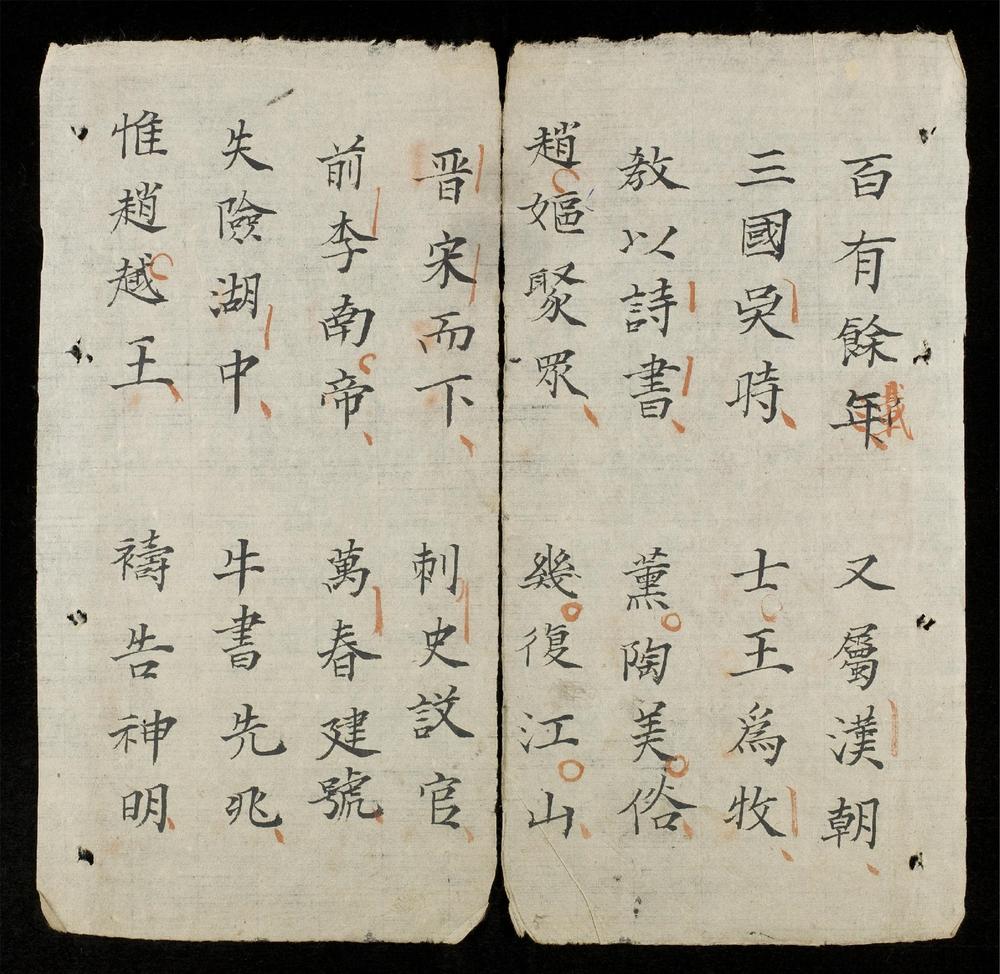 百有餘年　又屬漢朝
三國吳時　士王爲牧
教以詩書　薰陶美俗
趙嫗聚眾　幾復江山
晋宋而下　刺史設官
前李南帝　萬春建號
失險湖中　牛書先兆
惟趙越王　禱告神明